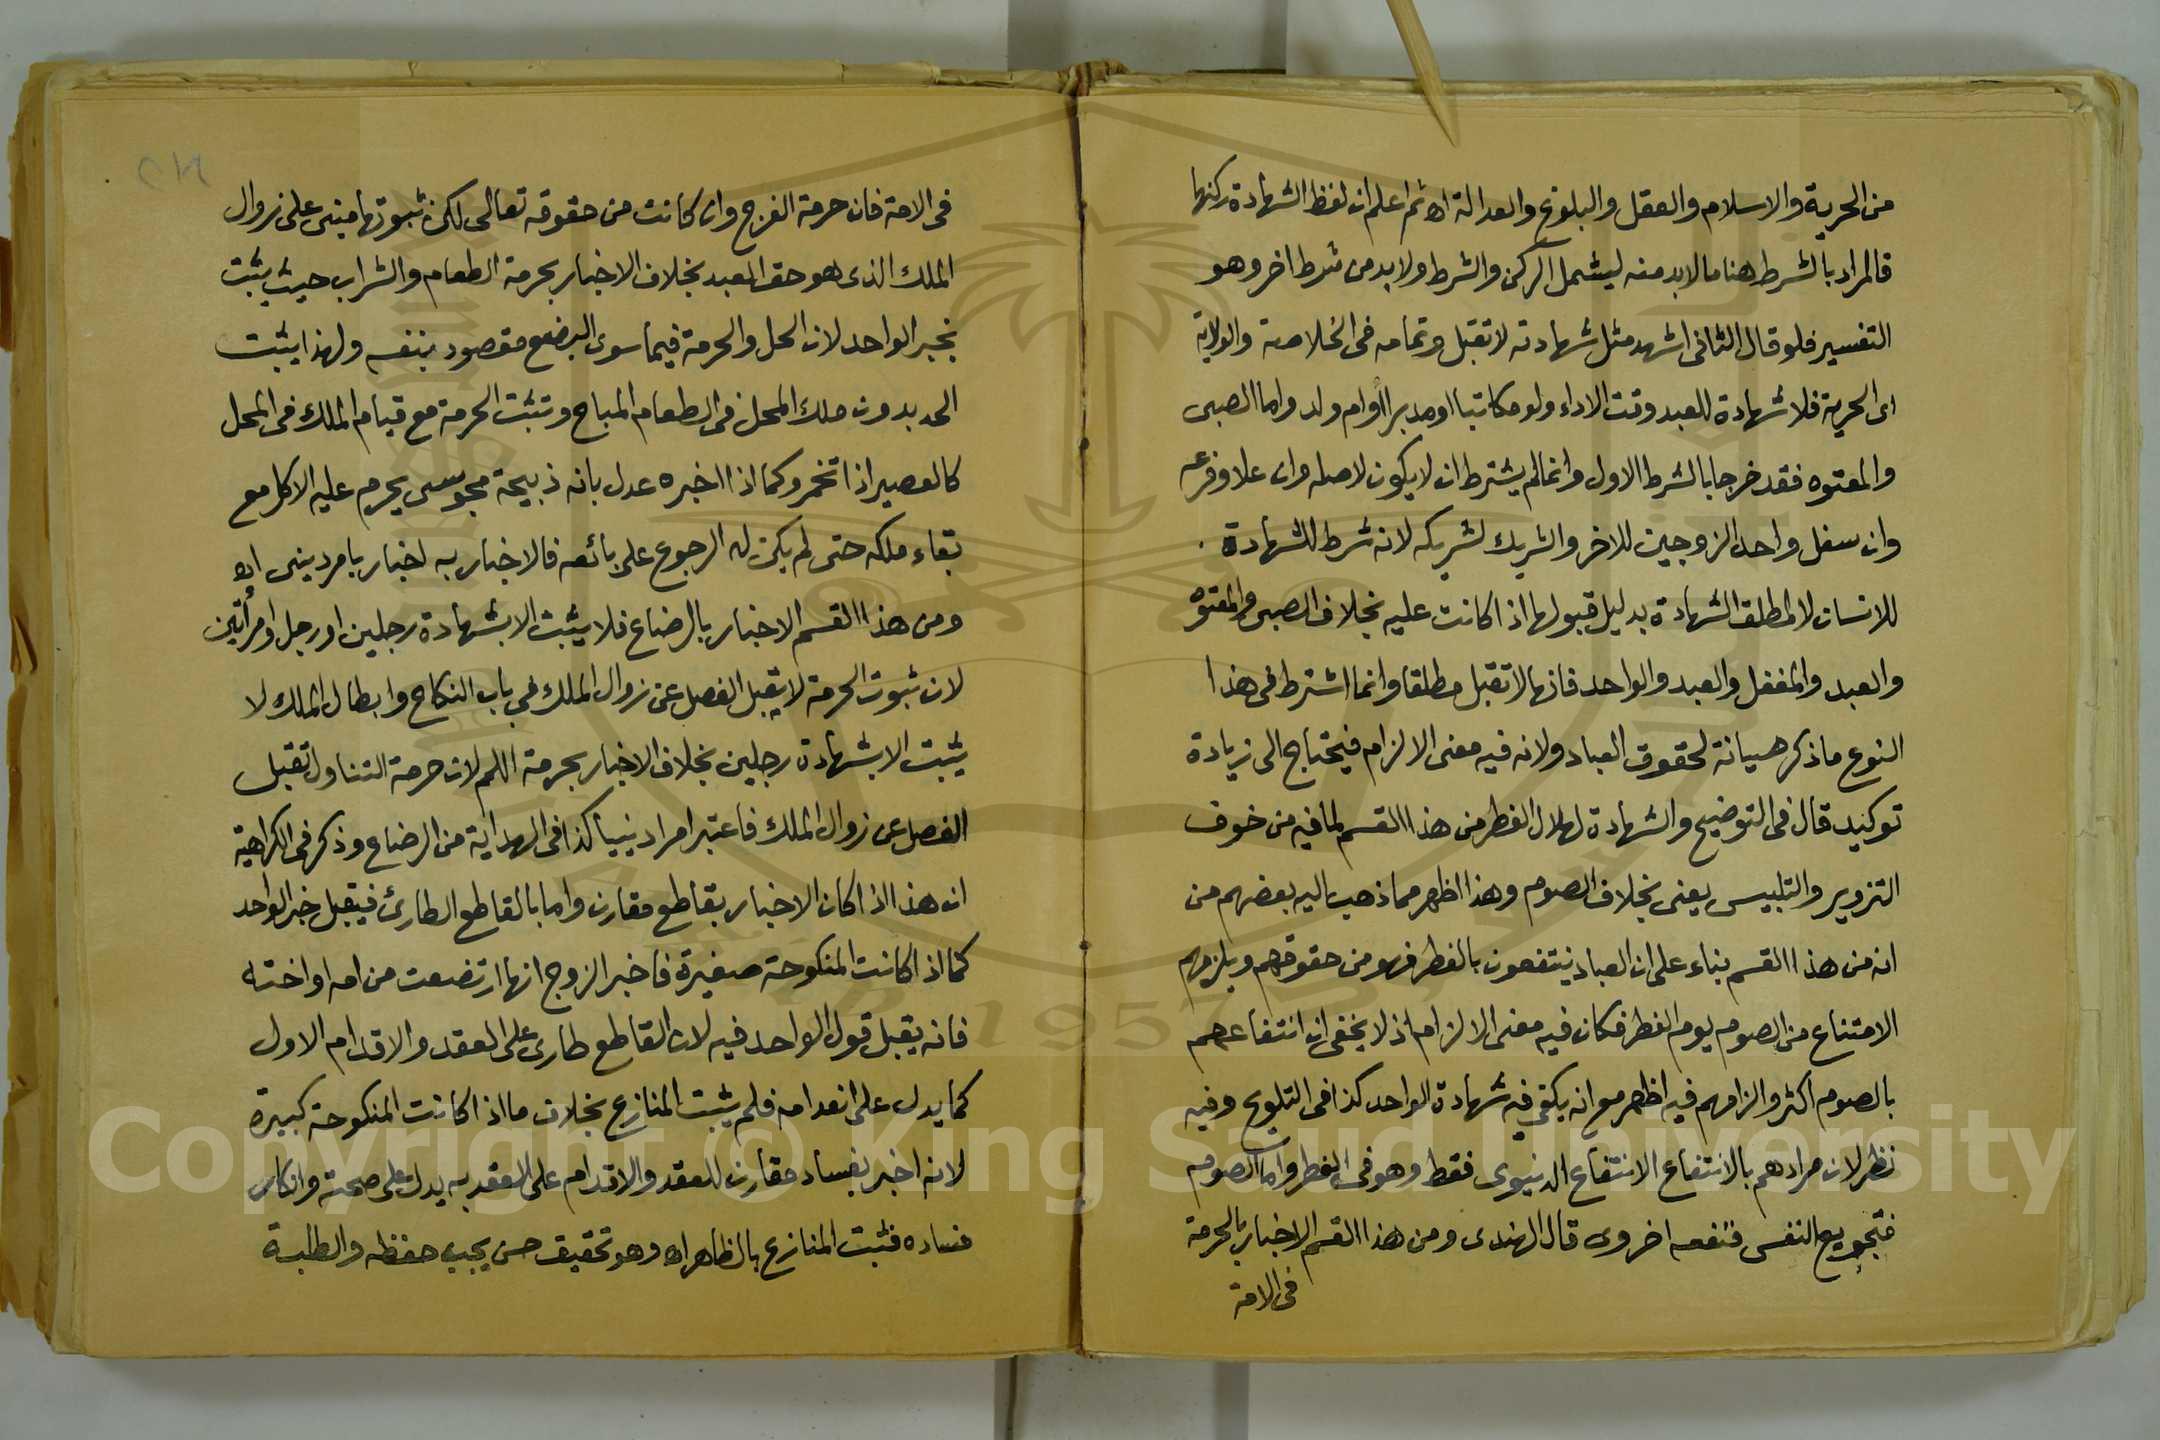 من الحرية والاسلام والعقل والبلوغ والعدالة اه ثم اعلم ان لفظ الشهادة ركنها
فالمراد بالشرط هنا مالابد منه ليشمل الركن والشرط ولابد من شرط اخر وهو
التفسير فلو قال الثانى اشهد مثل شهادته لا تقبل وتمامه فى الخلاصة والولاية
اى الحرية فلا شهادة للعبد وقت الاداء ولو مكاتبا او مدبرا او ام ولد واما الصبى
والمعتوه فقد خرجا بالشرط الاول وانما لم يشترط ان لا يكون لاصله وان علا وفرعه
وان سفل واحد الزوجين للاخر والشريك لشريكه لانه شرط للشهادة
للانسان لا لمطلق الشهادة بدليل قبولها اذا كانت عليه بخلاف الصبى والمعتوه
والعبد والمغفل والعبد والواحد فانها لا تقبل مطلقا وانما اشترط فى هذا
النوع ما ذكر صيانة لحقوق العباد ولانه فيه معنى الالزام فيحتاج الى زيادة
توكيد قال فى التوضيح والشهادة لهلال الفطر من هذا القسم لما فيه من خوف
التزوير والتلبيس يعنى بخلاف الصوم وهذا اظهر مما ذهب اليه بعضهم من
انه من هذا القسم بناء على ان العباد ينتفعون بالفطر فهو من حقوقهم ويلزمهم
الامتناع من الصوم يوم الفطر فكان فيه معنى الالزام اذ لا يخفى ان انتفاعهم
بالصوم اكثر والزامهم فيه اظهر مع انه يكفى فيه شهادة الواحد كذا فى التلويح وفيه
نظر لان مرادهم بالانتفاع الانتفاع الدنيوى فقط وهو فى الفطر واما الصوم
فتجويع النفس فنفعه اخروى قال الهندى ومن هذا القسم الاخبار بالحرمة
فى الامة
فى الامة فان حرمة الفرج وان كانت من حقوقه تعالى لكن ثبوتها مبنى على زوال
الملك الذى هو حق العبد بخلاف الاخبار بحرمة الطعام والشراب حيث يثبت
بخبر الواحد لان الحل والحرمة فيما سوى البضع مقصود بنفسه ولهذا يثبت
الحد بدون ملك المحل فى الطعام المباح وتثبت الحرمة مع قيام الملك فى المحل
كالعصير اذا تخمر وكما اذا اخبره عدل بانه ذبيحة مجوسى يحرم عليه الاكل مع
بقاء ملكه حتى لم يكن له الرجوع على بائعه فالاخبار به اخبار بامر دينى اه
ومن هذا القسم الاخبار بالرضاع فلا يثبت الا بشهادة رجلين او رجل وامرأتين
لان ثبوت الحرمة لا يقبل الفصل عن زوال الملك فى باب النكاح وابطال الملك لا
يثبت الا بشهادة رجلين بخلاف الاخبار بحرمة اللحم لان حرمة التناول تقبل
الفصل عن زوال الملك فاعتبر امرا دينيا كذا فى الهداية من الرضاع وذكر فى الكراهية
ان هذا اذا كان الاخبار بقاطع مقارن واما بالقاطع الطارئ فيقبل خبر الواحد
كما اذا كانت المنكوحة صغيرة فاخبر الزوج انها ارتضعت من امه او اخته
فانه يقبل قول الواحد فيه لان القاطع طارى على العقد والاقدام الاول
كما يدل على انعدامه فلم يثبت المنازع بخلاف ما اذا كانت المنكوحة كبيرة
لانه اخبر بفساد مقارن للعقد والاقدام على العقد به يدل على صحته وانكار
فساده فثبت المنازع بالظاهر اه وهو تحقيق حسن يجب حفظه والطلبة
Copyright © King Saud University
1957